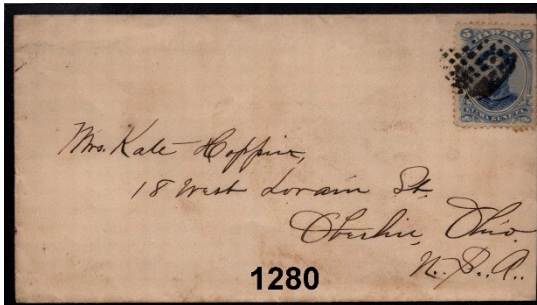 5 HAWAII 5
Mrs. Kate
18 West Lorain St.
Oberlin, Ohio.
U.S.A.
1280